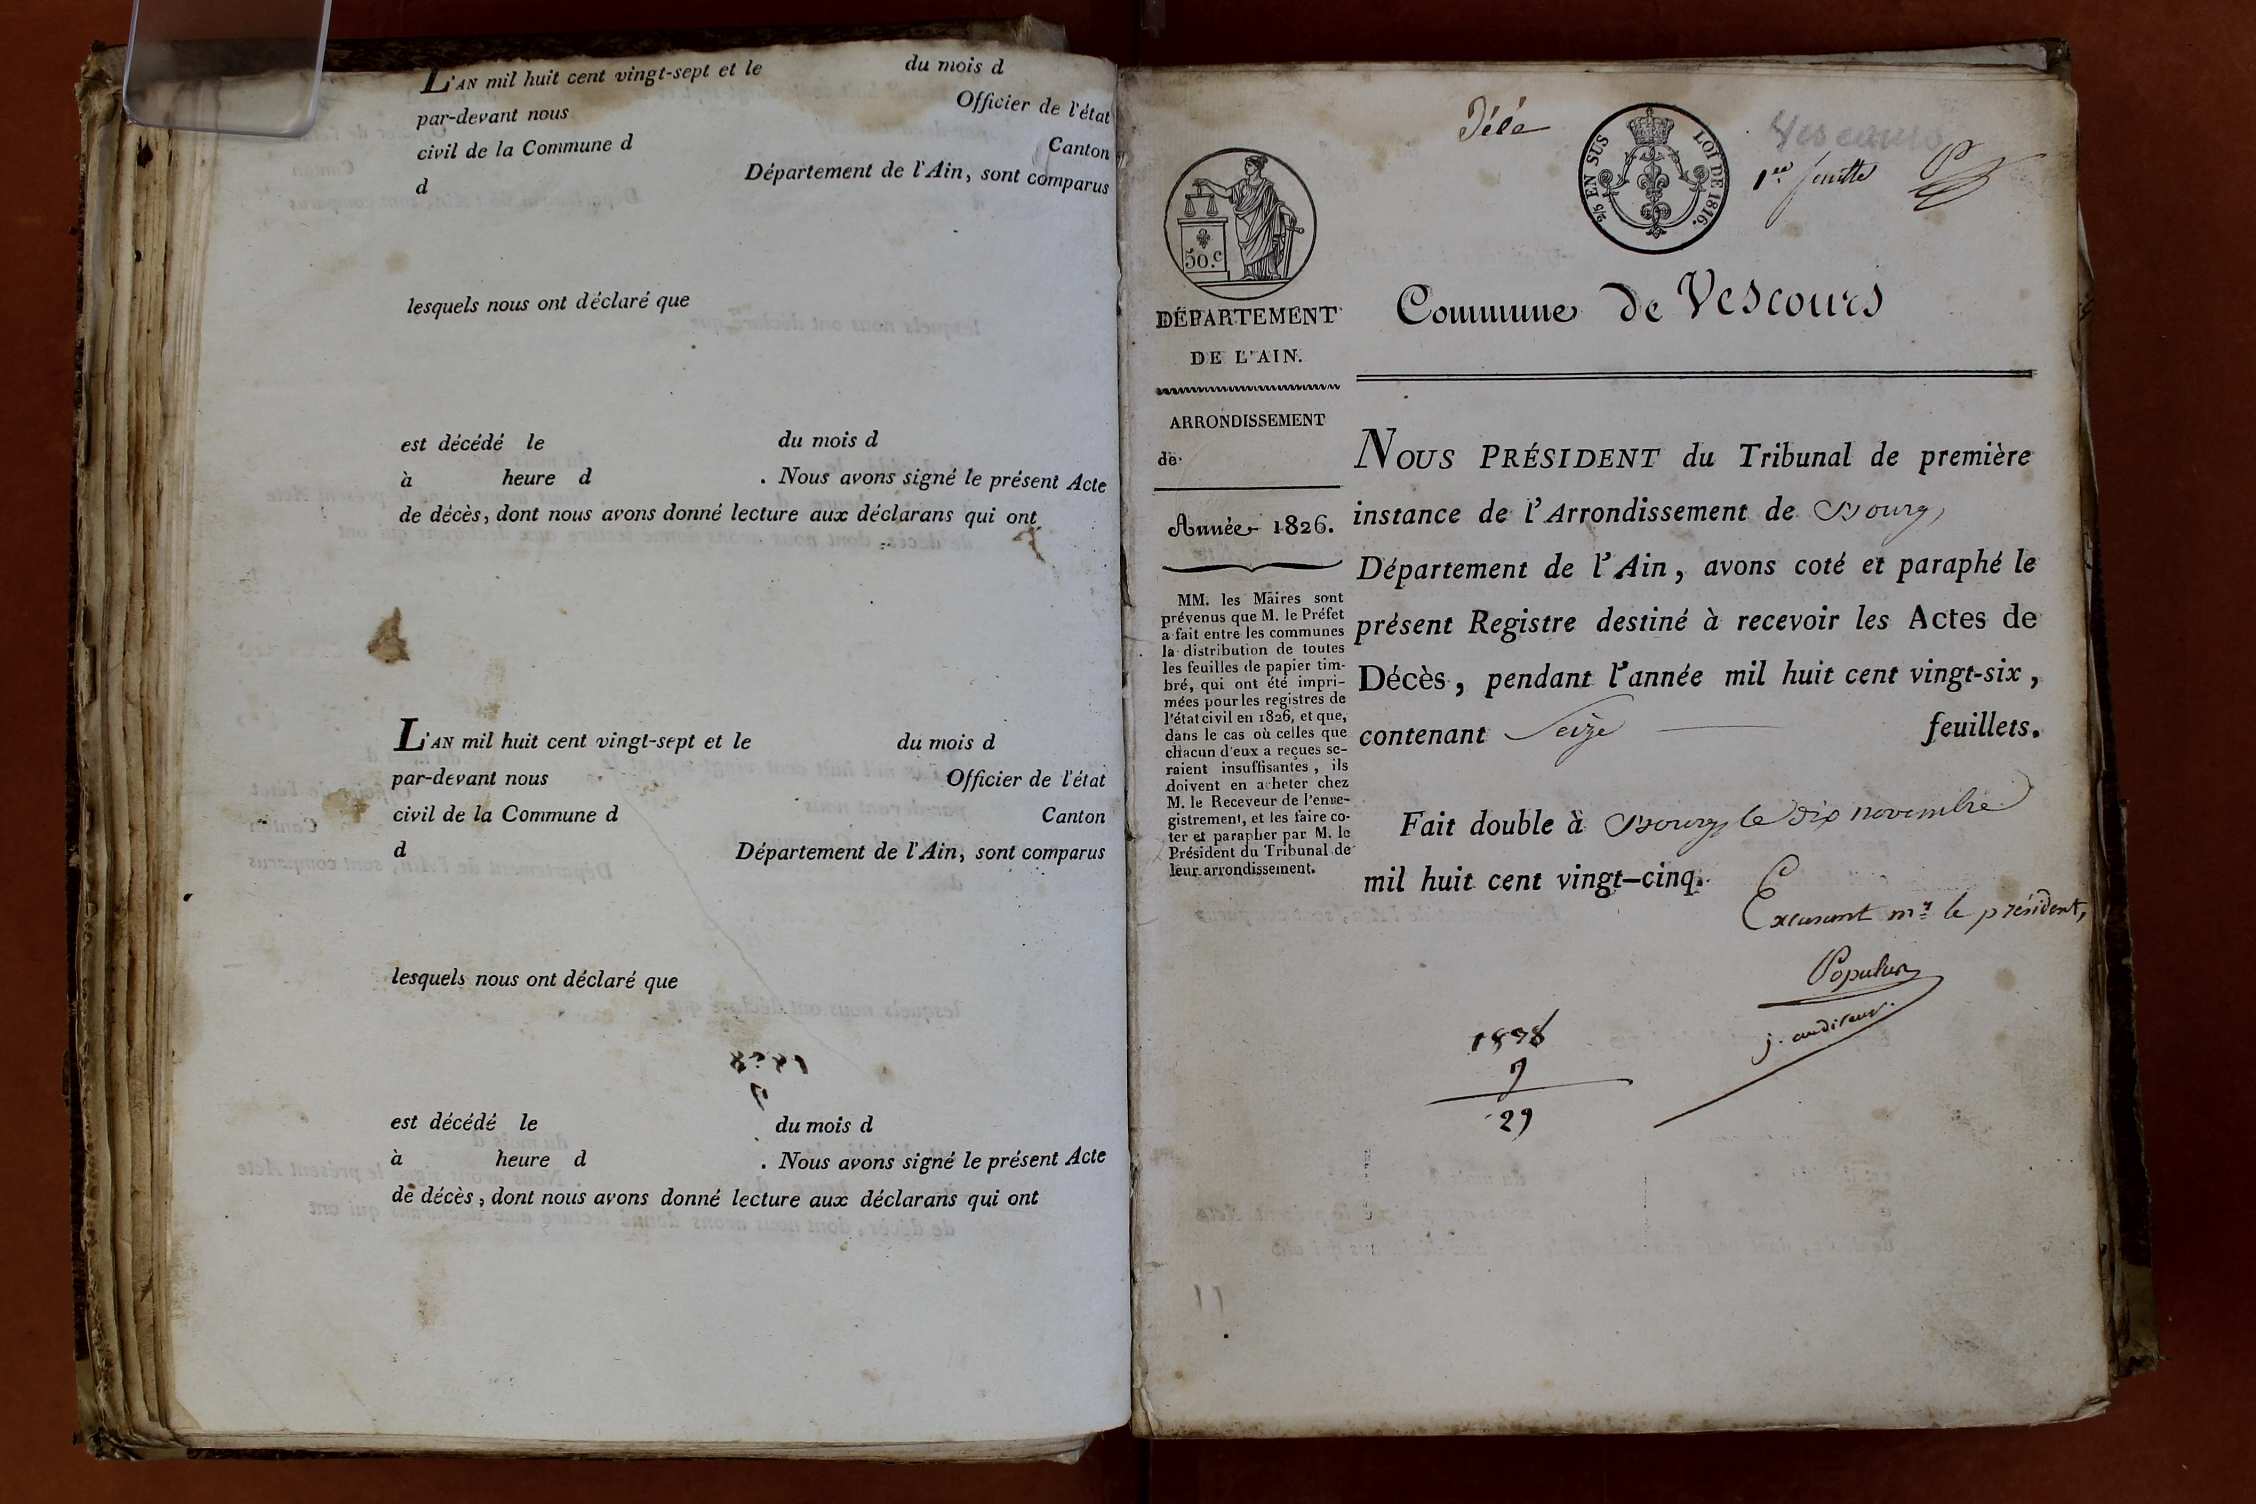 L'AN mil huit cent vingt-sept et le du mois d
par-devant nous Officier de l'état
civil de la Commune d Canton
d Département de l'Ain, sont comparus
lesquels nous ont déclaré que
est décédé le du mois d
à heure d . Nous avons signé le présent Acte
de décès, dont nous avons donné lecture aux déclarans qui ont
L'AN mil huit cent vingt-sept et le du mois d
par-devant nous Officier de l'état
civil de la Commune d Canton
d Département de l'Ain, sont comparus
lesquels nous ont déclaré que
est décédé le du mois d
à heure d . Nous avons signé le présent Acte
de décès, dont nous avons donné lecture aux déclarans qui ont
50.c
2/5 EN SUS LOI DE 1816.
Vescours
1re feuille
DÉPARTEMENT
DE L'AIN.
ARRONDISSEMENT
de
Année 1826.
MM. les Maires sont
prévenus que M. le Préfet
a fait entre les communes
la distribution de toutes
les feuilles de papier tim-
bré, qui ont été impri-
mées pour les registres de
l'état civil en 1826, et que,
dans le cas où celles que
chacun d'eux a reçues se-
raient insuffisantes, ils
doivent en acheter chez
M. le Receveur de l'enre-
gistrement, et les faire co-
ter et parapher par M. le
Président du Tribunal de
leur arrondissement.
Commune de Vescours
NOUS PRÉSIDENT du Tribunal de première
instance de l'Arrondissement de Bourg,
Département de l'Ain, avons coté et paraphé le
présent Registre destiné à recevoir les Actes de
Décès, pendant l'année mil huit cent vingt-six,
contenant Seize feuillets.
Fait double à Bourg, le dix novembre
mil huit cent vingt-cinq.
Excusant mr le président,
Populus
j. auditeur
9
29